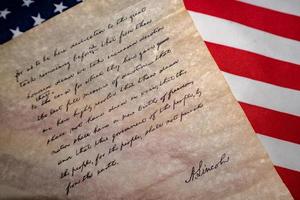 for us to be here dedication to the great
task remaining before that from these
honored dead we take increased devotion
to the cause for which they here gave
the last full measure of devotion that
we here highly resolve that these dead
shall not have died in vain, that this
nation shall have a new birth of freedom,
and that this government of the people, by
the people, for the people, shall not perish
from the earth.
A. Lincoln